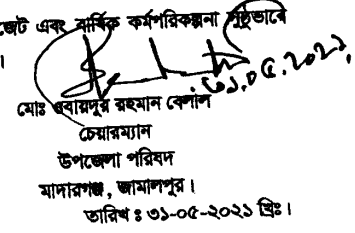 জেট এবং বার্ষিক কর্মপরিকল্পনা সুষ্ঠুভাবে
।
৩১.০৫.২০২১
মোঃ ওবায়দুর রহমান বেলাল
চেয়ারম্যান
উপজেলা পরিষদ
মাদারগঞ্জ, জামালপুর।
তারিখ ঃ ৩১-০৫-২০২১ খ্রিঃ।